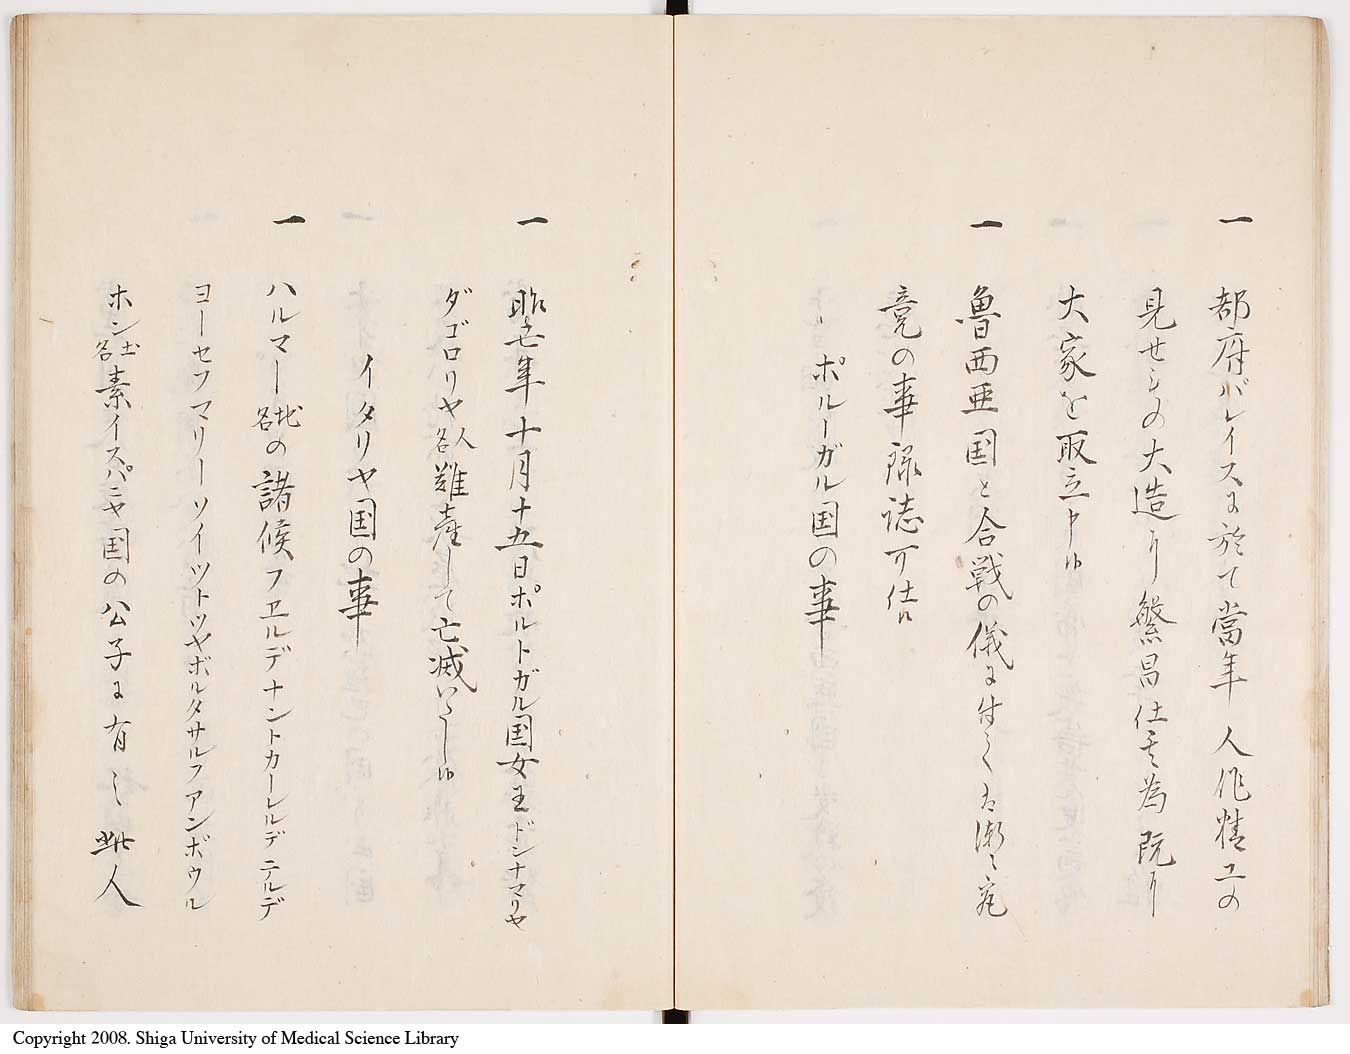 一 都府バレイスに於て當年人作精工の
見せもの大造り繁昌仕其為既り
大家を取立申候
一 魯西亜国と合戦の儀に付てハ漸々究
竟の事跡誌可仕候
ポルーガル国の事
一 昨子年十月十五日ポルトガル国女王ドンナマリヤ
ダゴロリヤ人名難産して亡滅いたし候
イタリヤ国の事
一 ハルマー地名の諸侯フエルデナントカーレルデニルデ
ヨーセフマリーツイツトツヤボルタサルフアンボウル
ホン土名素イスパニヤ国の公子に有之此人
Copyright 2008. Shiga University of Medical Science Library